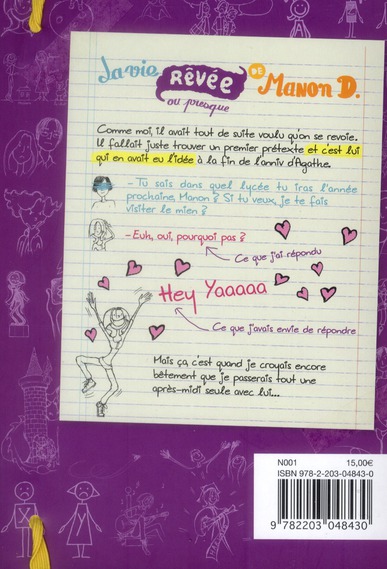 La vie RÊVÉE DE MANON D.
ou presque
Comme moi, il avait tout de suite voulu qu'on se revoie.
Il fallait juste trouver un premier prétexte et c'est lui
qui en avait eu l'idée à la fin de l'anniv d'Agathe.
- Tu sais dans quel lycée tu iras l'année
prochaine, Manon ? Si tu veux, je te fais
visiter le mien ?
- Euh, oui, pourquoi pas ?
Ce que j'ai répondu
Hey Yaaaaa
Ce que j'avais envie de répondre
Mais ça, c'est quand je croyais encore
bêtement que je passerais tout une
après-midi seule avec lui...
N001
15,00€
ISBN 978-2-203-04843-0
9 782203 048430